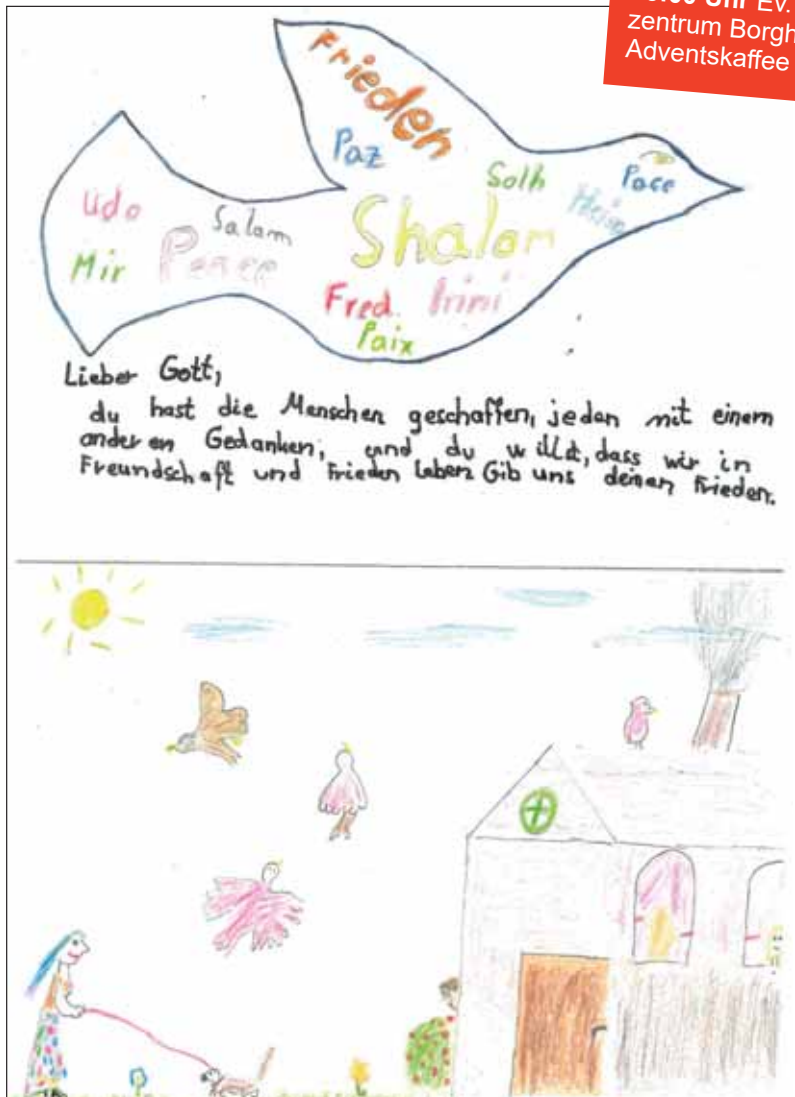 Uhr Ev.
zentrum Borgh
Adventskaffee
Frieden
Paz
Solh
Pace
Udo
Salam
Shalom
Mir
Peace
Fred.
Irini
Paix
Lieber Gott,
du hast die Menschen geschaffen, jeden mit einem
anderen Gedanken, und du willst, dass wir in
Freundschaft und Frieden leben Gib uns deinen Frieden.